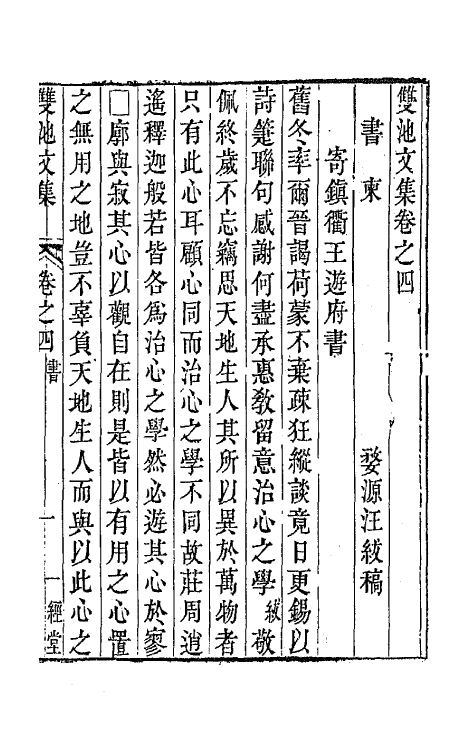 雙池文集卷之四
書柬　婺源汪紱稿
寄鎮衢王遊府書
舊冬率爾晉謁荷蒙不棄疎狂縱談竟日更錫以
詩箑聯句感謝何盡承惠教留意治心之學紱敬
佩終歲不忘竊思天地生人其所以異於萬物者
只有此心耳顧心同而治心之學不同故莊周逍
遙釋迦般若皆各爲治心之學然必遊其心於寥
□廓與寂其心以觀自在則是皆以有用之心置
之無用之地豈不辜負天地生人而與以此心之
雙池文集　卷之四　書　一　一經堂